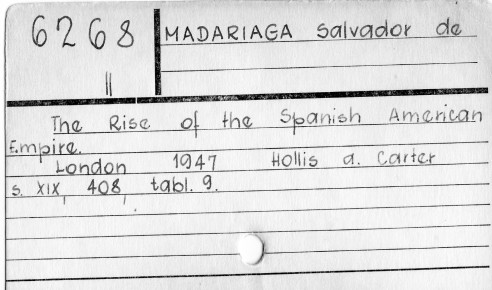 6268 MADARIAGA Salvador de
II
The Rise of the Spanish American
Empire.
London 1947 Hollis a. Carter
s. XIX, 408, tabl. 9.